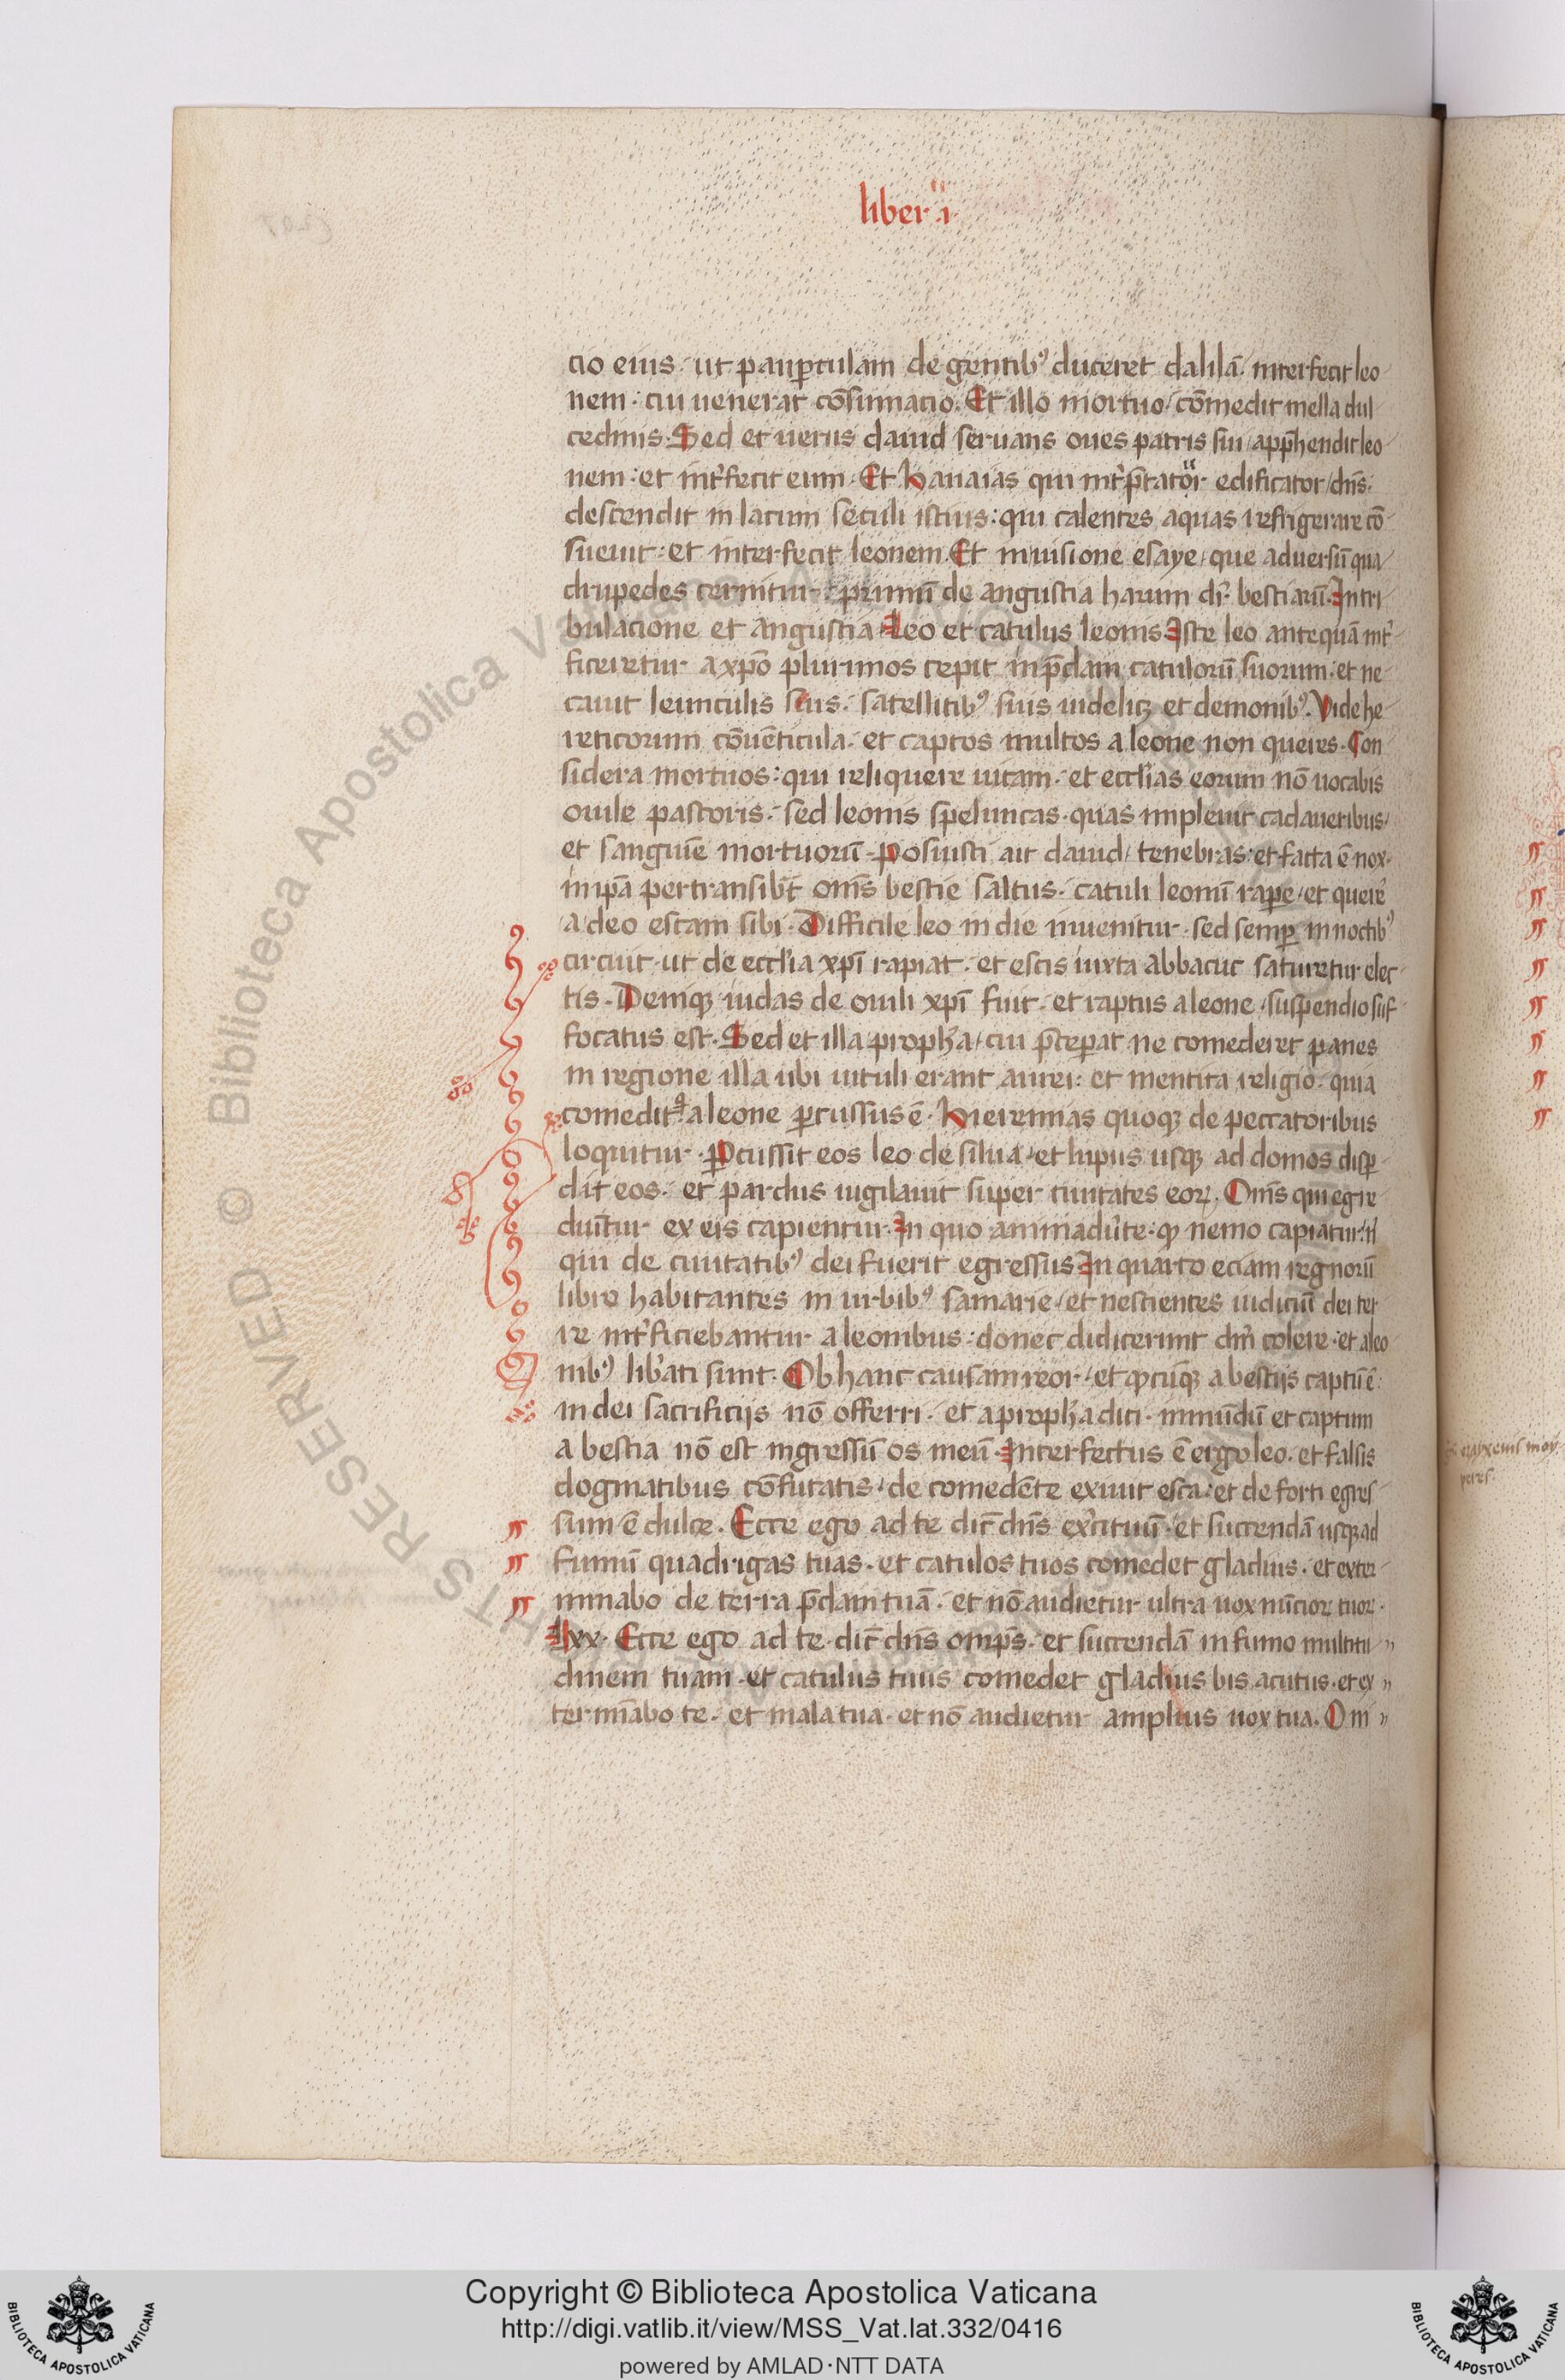 liber i
cio eius · ut paup̲culam de gentib⁹ duceret dalilā · interfecit leo
nem · cui uenerat cōsumacio. Et illo mortuo · cōmedit mella dul
cedinis. Sed et uerus dauid seruans oues patris sui / app̄hendit leo
nem : et int̉fecit eum. Et banaias qui int̉p̄tatur edificator / dn̄s ·
descendit in lacum seculi istius : qui calentes aquas refrigerare cō
sueuit : et interfecit leonem. Et in uisione esaye / que aduersū qua
drupedes cernitur · primū de angustia harum dr̄ bestiarū. In tri
bulacione et angustia Leo et catulus leonis. Iste leo antequā int̉
ficeretur a xp̄o plurimos cepit in p̄dam catulorū suorum · et ne
cauit leunculis suis · satellitib⁹ suis uidelicꝫ et demonib⁹. Vide he
reticorum cōuēticula · et captos multos a leone non queres. Con
sidera mortuos : qui reliquere uitam · et eccl̄ias eorum nō uocabis
ouile pastoris · sed leonis speluncas · quas impleuit cadaueribus /
et sanguīe mortuorū. Posuisti ait dauid / tenebras : et facta ē nox ·
in ip̄a pertransibt̄ om̄s bestie saltus · catuli leonū rapꝑe / et querē
a deo escam sibi. Difficile leo in die inuenitur · sed semꝑ in noctib⁹
circuit · ut de eccl̄ia xp̄i rapiat · et escis iuxta abbacuc saturetur elec
tis. Deniqꝫ iudas de ouili xp̄i fuit · et raptus a leone / suspendio suf
focatus est. Sed et illa proph̄a / cui p̄ceꝑat ne comederet panes
in regione illa ubi uituli erant aurei : et mentita religio · quia
comedit · a leone ꝑcussus ē. Hieremias quoqꝫ de peccatoribus
loquitur. Ꝑcussit eos leo de silua / et lupus usqꝫ ad domos disꝑ
dit eos · et pardus uigilauit super ciuitates eoꝝ. Om̄s qui egre
duūtur ex eis capientur. In quo animadūte · qꝫ nemo capiatur · n̄
qui de ciuitatib⁹ dei fuerit egressus. In quarto eciam regnorū
libro habitantes in urbib⁹ samarie / et nescientes iudiciū dei ter
re int̉ficiebantur a leonibus : donec didicerunt dn̄m colere · et a leo
nib⁹ lib̉ati sunt. Ob hanc causam reor / et ꝙcūqꝫ a bestijs captū ē
in dei sacrificijs nō offerri · et a proph̄a dici · inmūdū et captum
a bestia nō est ingressū os meū. Interfectus ē ergo leo · et falsis
dogmatibus cōfutatis / de comedēte exiuit esca : et de forti egres
sum ē dulce. Ecce ego ad te dic̄ dn̄s ex̉cituū · et succendā usqꝫ ad
fumū quadrigas tuas · et catulos tuos comedet gladius · et exter
minabo de terra p̄dam tuā · et nō audietur ultra uox nūcioꝝ tuoꝝ ·
lxx. Ecce ego ad te · dic̄ dn̄s omp̄s · et succendā in fumo multitu
dinem tuam · et catulus tuus comedet gladius bis acutus · et ex
terminabo te · et mala tua · et nō audietur amplius uox tua. Om
Biblioteca Apostolica Vaticana
RIGHTS RESERVED ©
Copyright © Biblioteca Apostolica Vaticana
http://digi.vatlib.it/view/MSS_Vat.lat.332/0416
powered by AMLAD·NTT DATA
BIBLIOTECA APOSTOLICA VATICANA
BIBLIOTECA APOSTOLICA VATICANA